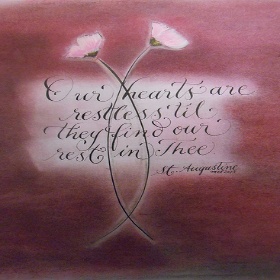 Our hearts are
restless, 'til
they find our
rest in Thee
St. Augustine